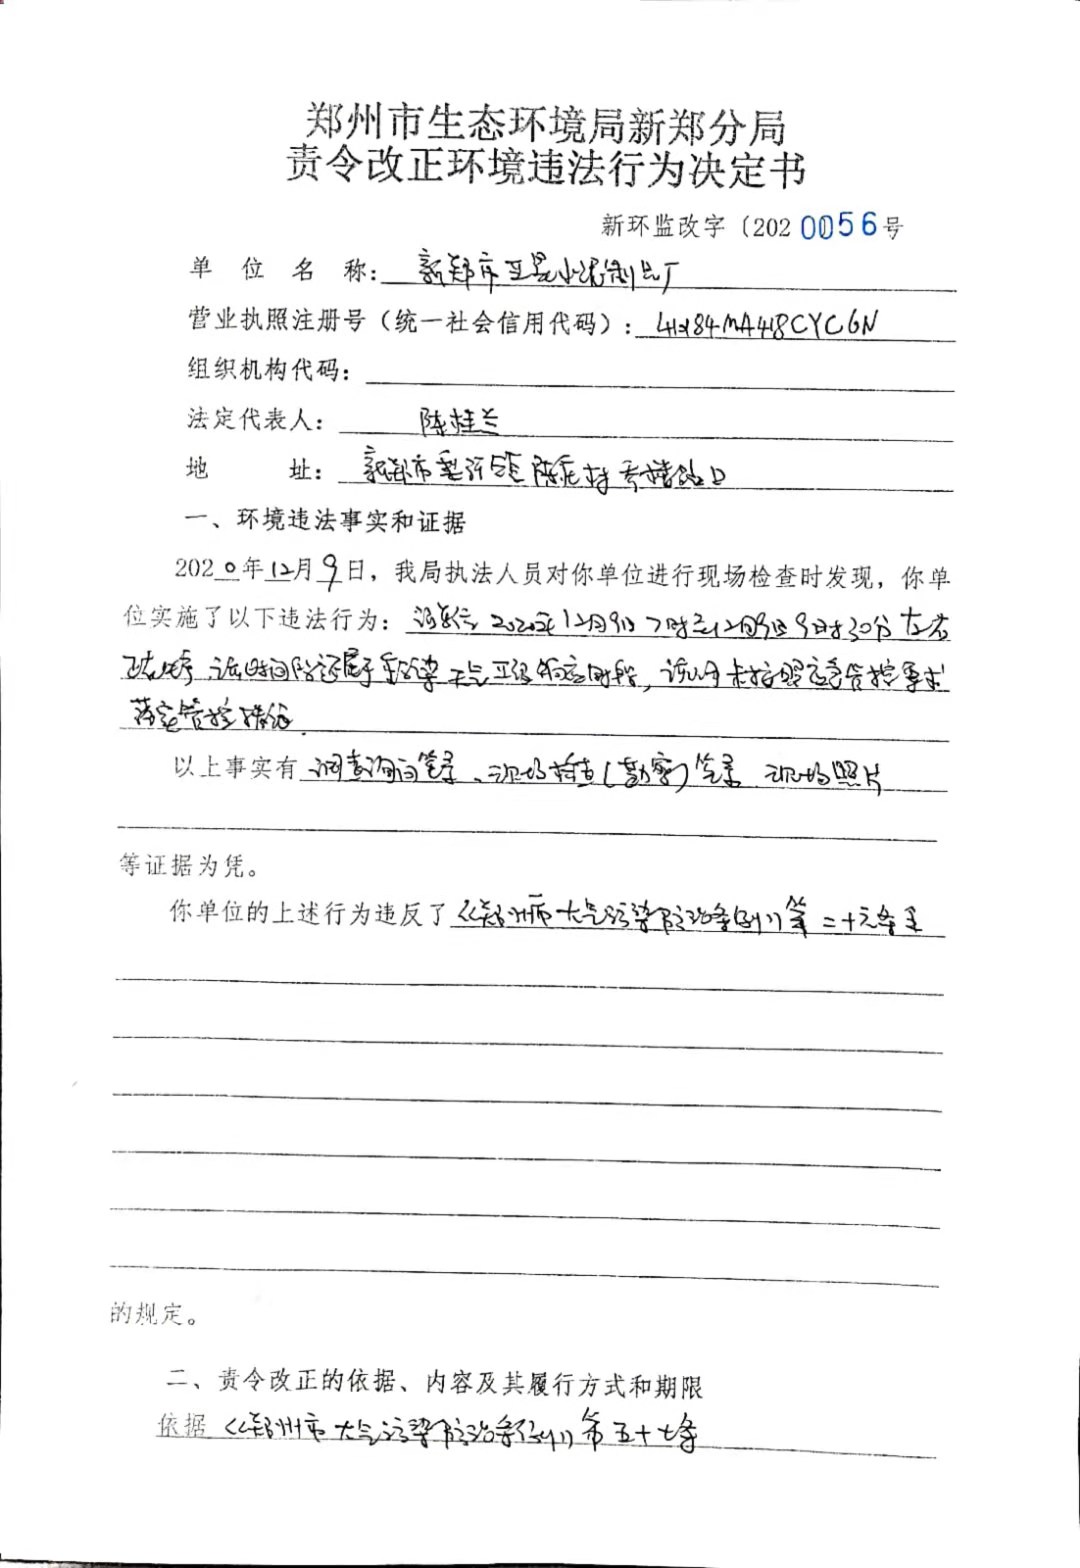 郑州市生态环境局新郑分局
责令改正环境违法行为决定书
新环监改字〔2020056号
单位名称：新郑市 水泥制品厂
营业执照注册号（统一社会信用代码）：MA418CYC6N
组织机构代码：
法定代表人：陈桂兰
地址：新郑市梨河镇陈庄村
一、环境违法事实和证据
2020年12月9日，我局执法人员对你单位进行现场检查时发现，你单
位实施了以下违法行为：2020年12月9日7时至12月9日9时30分左右
时间阶段属于重污染天气 响应时段，该 未按照应急管控要求
落实管控措施.
以上事实有调查询问笔录、现场检查(勘察)笔录、现场照片
等证据为凭。
你单位的上述行为违反了《郑州市大气污染防治条例》第二十六条
的规定。
二、责令改正的依据、内容及其履行方式和期限
依据《郑州市大气污染防治条例》第五十七条